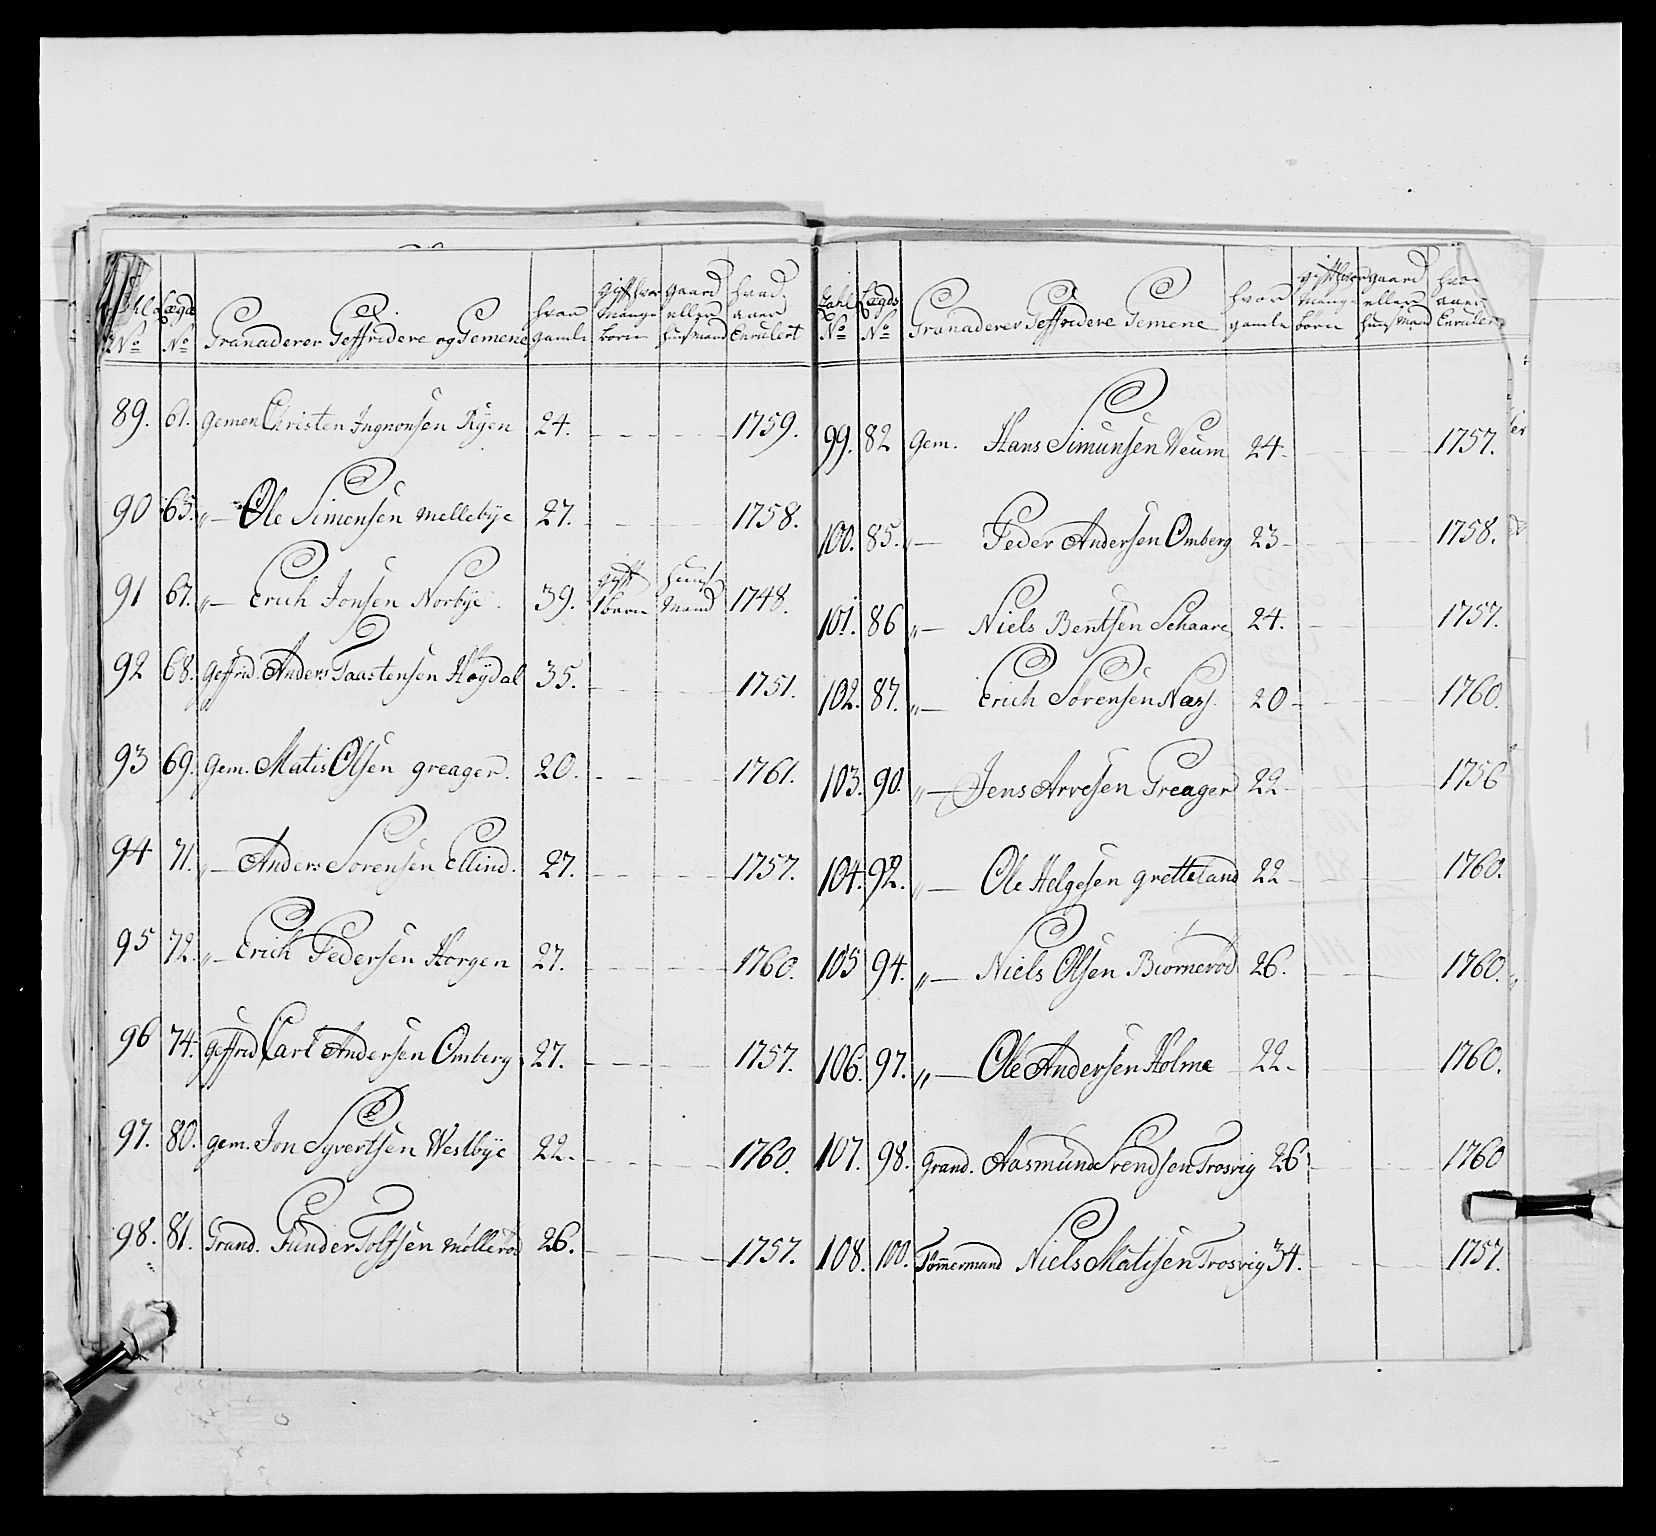 Lægds hvor gift hvor gaard hvad
gamle mange eller aaer
No No Granaderer Geffridere og Gemene børn huusmand Enrulert
89. 61. gemen Christen Ingmonsen Ryen 24. 1759.
90 63. „— Ole Simensen Mellebye 27. 1758.
91 67. „— Erich Jonsen Norbye. 39. gift 1 barn huus Mand 1748.
92 68. Geffrid. Anders Taastensen Høydal 35. 1751.
93 69. Gem. Matis Olsen greager. 20. 1761.
94 71. „— Anders Sørensen Ellind. 27. 1757.
95 72. „— Erich Pedersen Horgen 27. 1760.
96 74. Geffrid Carl Andersen Omberg 27. 1757.
97. 80. gem. Jon Syvertsen Westbye 22. 1760.
98. 81. Grand. Gunder Tolfsen Mollerød 26. 1757.
Zahl Lægds hvor gift hvor gaard hvor
gamle mange eller aaer
No No Granaderer Geffridere Gemene børn huusmand
99. 82 Gem. Hans Simunsen Weum 24. 1757.
100. 85. „— Peder Andersen Omberg 23 1758.
101. 86 „— Niels Bentsen Schaare 24. 1757.
102. 87. „— Erich Sørensen Næss. 20 1760.
103. 90. „— Jens Arvesen Greager 22 1756
104. 92. „— Ole Helgesen gretteland 22 1760.
105 94. „— Niels Olsen Biørnerød 26. 1760.
106. 97. „— Ole Andersen Holme 22. 1760.
107. 98. Grand. Aasmund Svendsen Trosvig 26 1760
108. 100. Tømmermand Niels Matisen Trosvig 34. 1757.